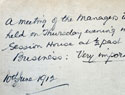 A meeting of the Managers is
held on Thursday evening n
Session House at ½ past
Business: Very impor
10th June 1912